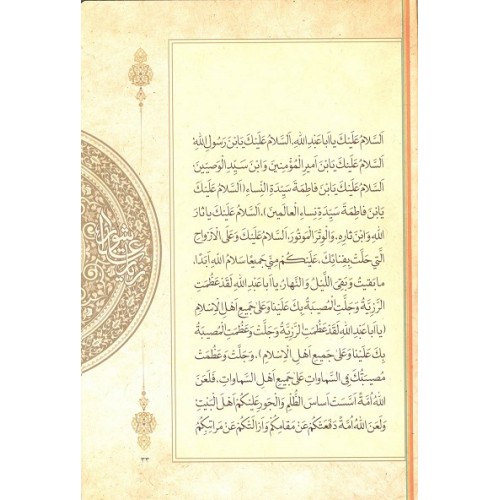 اَلسَّلامُ عَلَيْكَ يا اَبا عَبْدِ اللهِ، اَلسَّلامُ عَلَيْكَ يَا بْنَ رَسُولِ اللهِ؛
اَلسَّلامُ عَلَيْكَ يَا بْنَ اَميرِ الْمُؤْمِنينَ وَ ابْنَ سَيِّدِ الْوَصِيّينَ
اَلسَّلامُ عَلَيْكَ يَا بْنَ فاطِمَةَ سَيِّدَةِ النِّساءِ (اَلسَّلامُ عَلَيْكَ
يَا بْنَ فاطِمَةَ سَيِّدَةِ نِساءِ الْعالَمينَ)، اَلسَّلامُ عَلَيْكَ يا ثارَ
اللهِ وَ ابْنَ ثارِهِ، وَ الْوِتْرَ الْمَوْتُورَ، اَلسَّلامُ عَلَيْكَ وَ عَلَى الْاَرْواحِ
الَّتي حَلَّتْ بِفِنائِكَ، عَلَيْكُمْ مِنّي جَميعًا سَلامُ اللهِ اَبَدًا،
ما بَقيتُ وَ بَقِيَ اللَّيْلُ وَ النَّهارُ؛ يا اَبا عَبْدِ اللهِ لَقَدْ عَظُمَتِ
الرَّزِيَّةُ وَ جَلَّتِ الْمُصيبَةُ بِكَ عَلَيْنا وَ عَلى جَميعِ اَهْلِ الْاِسْلامِ
(يا اَبا عَبْدِ اللهِ لَقَدْ عَظُمَتِ الرَّزِيَّةُ وَ جَلَّتْ وَ عَظُمَتِ الْمُصيبَةُ
بِكَ عَلَيْنا وَ عَلى جَميعِ اَهْلِ الْاِسْلامِ)، وَ جَلَّتْ وَ عَظُمَتْ
مُصيبَتُكَ فِي السَّماواتِ عَلى جَميعِ اَهْلِ السَّماواتِ، فَلَعَنَ
اللهُ اُمَّةً اَسَّسَتْ اَساسَ الظُّلْمِ وَ الْجَوْرِ عَلَيْكُمْ اَهْلَ الْبَيْتِ؛
وَ لَعَنَ اللهُ اُمَّةً دَفَعَتْكُمْ عَنْ مَقامِكُمْ وَ اَزالَتْكُمْ عَنْ مَراتِبِكُمُ
زیارت عاشورا
۲۲